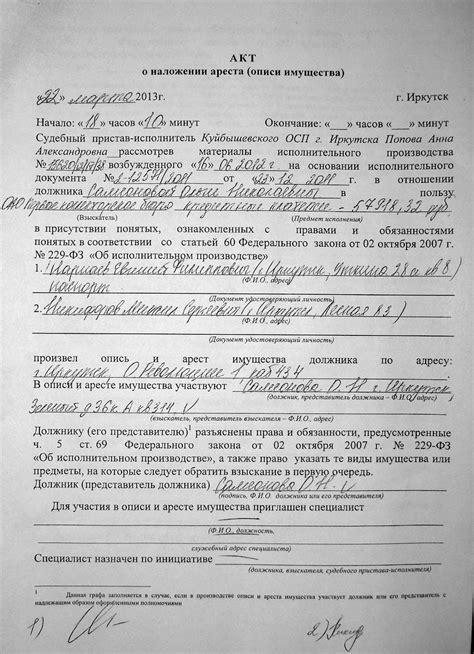 АКТ
о наложении ареста (описи имущества)
«22» марта 2013г. г. Иркутск
Начало: «18» часов «10» минут Окончание: «__» часов «__» минут
Судебный пристав-исполнитель Куйбышевского ОСП г. Иркутска Попова Анна
Александровна рассмотрев материалы исполнительного производства
возбужденного «16» 06.2012 г на основании исполнительного
документа № от «23» 12.2011 г. в отношении
должника Самсоновой Никола в пользу
ОАО Первое коллекторское бюро кредитные платежи - 57918,32 руб.
(Взыскатель) (Предмет исполнения)
в присутствии понятых, ознакомленных с правами и обязанностями
понятых в соответствии со статьей 60 Федерального закона от 02 октября 2007 г.
№ 229-ФЗ «Об исполнительном производстве»
1. Филиппович г. Иркутск, 28 кв 8)
(Ф.И.О., адрес)
паспорт
(Документ удостоверяющий личность)
2. Никифоров Михаил Сергеевич (Иркутск, Лесная
(Ф.И.О., адрес)
(Документ удостоверяющий личность)
произвел опись и арест имущества должника по адресу:
г. Иркутск, О. Революции 1 каб 434
В описи и аресте имущества участвуют Самсонова О. Н г. Иркутск,
(должник, представитель должника – Ф.И.О.)
Зеленый д 36 к. А кв 314, V
(взыскатель, представитель взыскателя – Ф.И.О.)
Должнику (его представителю)1 разъяснены права и обязанности, предусмотренные
ч. 5 ст.69 Федерального закона от 02 октября 2007 г. № 229-ФЗ
«Об исполнительном производстве», а также право указать те виды имущества или
предметы, на которые следует обратить взыскание в первую очередь.
Должник (представитель должника) Самсонова О. Н. V
(подпись, Ф.И.О. должника или его представителя)
Для участия в описи и аресте имущества приглашен специалист
(Ф.И.О., должность,
служебный адрес специалиста)
Специалист назначен по инициативе
(должника, взыскателя, судебного пристава-исполнителя)
1 Данная графа заполняется в случае, если в производстве описи и ареста имущества участвует должник или его представитель с
надлежащим образом оформленными полномочиями
1) 2)